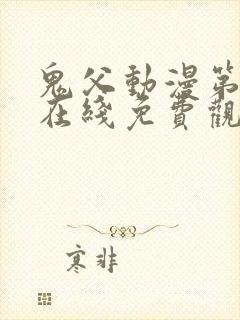 鬼父動漫第
在綫免費觀
寒非